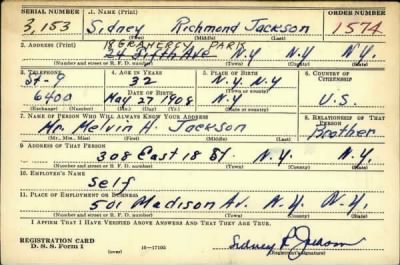 SERIAL NUMBER 1. NAME (Print) ORDER NUMBER
3,153 Sidney Richmond Jackson 1574
(First) (Middle) (Last)
2. ADDRESS (Print) 18 GRAMERCY PARK
24 Fifth Ave N.Y N.Y N.Y.
(Number and street or R. F. D. number) (Town) (County) (State)
3. TELEPHONE 4. AGE IN YEARS 5. PLACE OF BIRTH 6. COUNTRY OF CITIZENSHIP
St-9 32 N.Y, N.Y
DATE OF BIRTH (Town or county)
6400 May 27 1908 N.Y U.S.
(Exchange) (Number) (Mo.) (Day) (Yr.) (State or country)
7. NAME OF PERSON WHO WILL ALWAYS KNOW YOUR ADDRESS 8. RELATIONSHIP OF THAT PERSON
Mr. Melvin H. Jackson Brother
(Mr., Mrs., Miss) (First) (Middle) (Last)
9. ADDRESS OF THAT PERSON
308 East 18 St. N.Y. N.Y.
(Number and street or R. F. D. number) (Town) (County) (State)
10. EMPLOYER'S NAME
Self
11. PLACE OF EMPLOYMENT OR BUSINESS
501 Madison Av. N.Y. N.Y.
(Number and street or R. F. D. number) (Town) (County) (State)
I AFFIRM THAT I HAVE VERIFIED ABOVE ANSWERS AND THAT THEY ARE TRUE.
REGISTRATION CARD
D. S. S. Form 1 (over) 16—17105
Sidney R Jackson
(Registrant's signature)